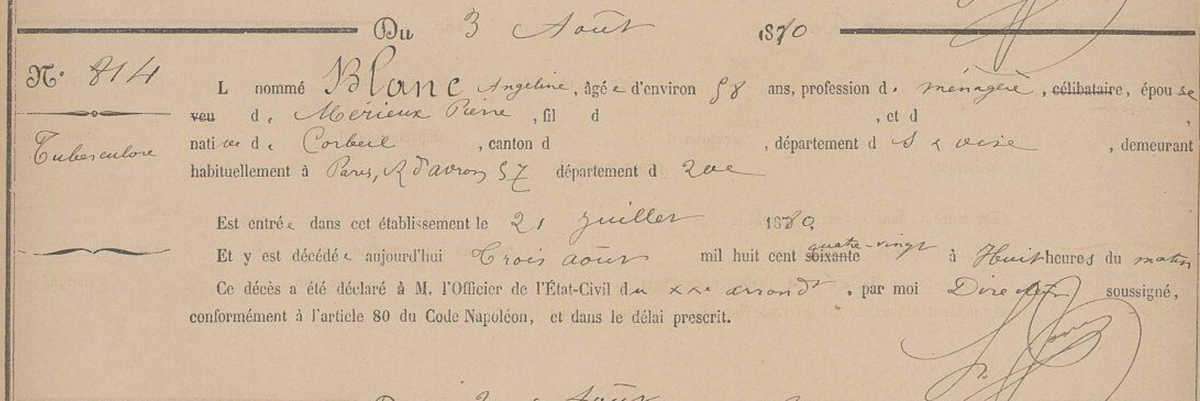 Du 3 Août 1880
N° 814
L nommé Blanc Angeline, âgée d'environ 58 ans, profession de ménagère, célibataire, épouse
veu de Mérieux Pierre, fil d , et d ,
Tuberculose
native de Corbeil, canton d , département d S & oise, demeurant
habituellement à Paris, R d'avron 57 département d 20e
Est entrée dans cet établissement le 21 juillet 1880
Et y est décédée aujourd'hui Trois août mil huit cent soixante quatre-vingt à Huit heures du matin
Ce décès a été déclaré à M. l'Officier de l'État-Civil du XXe arrondt, par moi Directeur soussigné,
conformément à l'article 80 du Code Napoléon, et dans le délai prescrit.
Du 3 Août